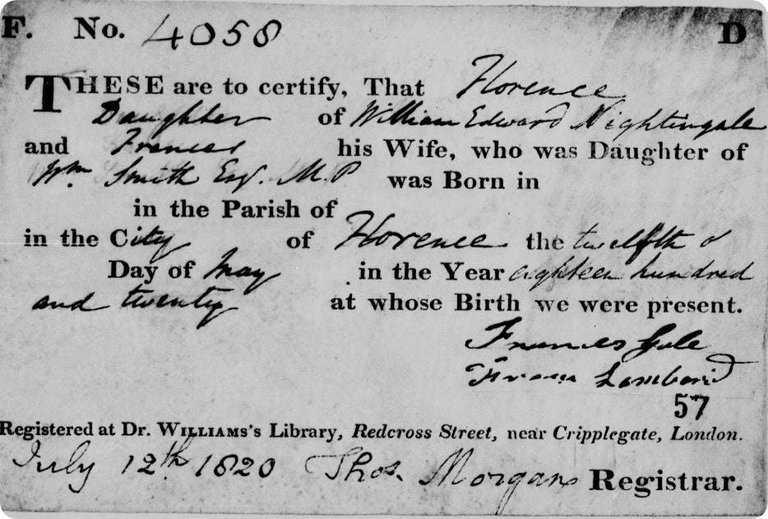 F. No. 4058 D
THESE are to certify, That Florence
Daughter of William Edward Nightingale
and Frances his Wife, who was Daughter of
Wm Smith Esq. M.P was Born in
in the Parish of
in the City of Florence the twelfth
Day of May in the Year eighteen hundred
and twenty at whose Birth we were present.
Frances Gale
Lombard
57
Registered at Dr. WILLIAMS's Library, Redcross Street, near Cripplegate, London.
July 12th 1820 Thos. Morgan Registrar.